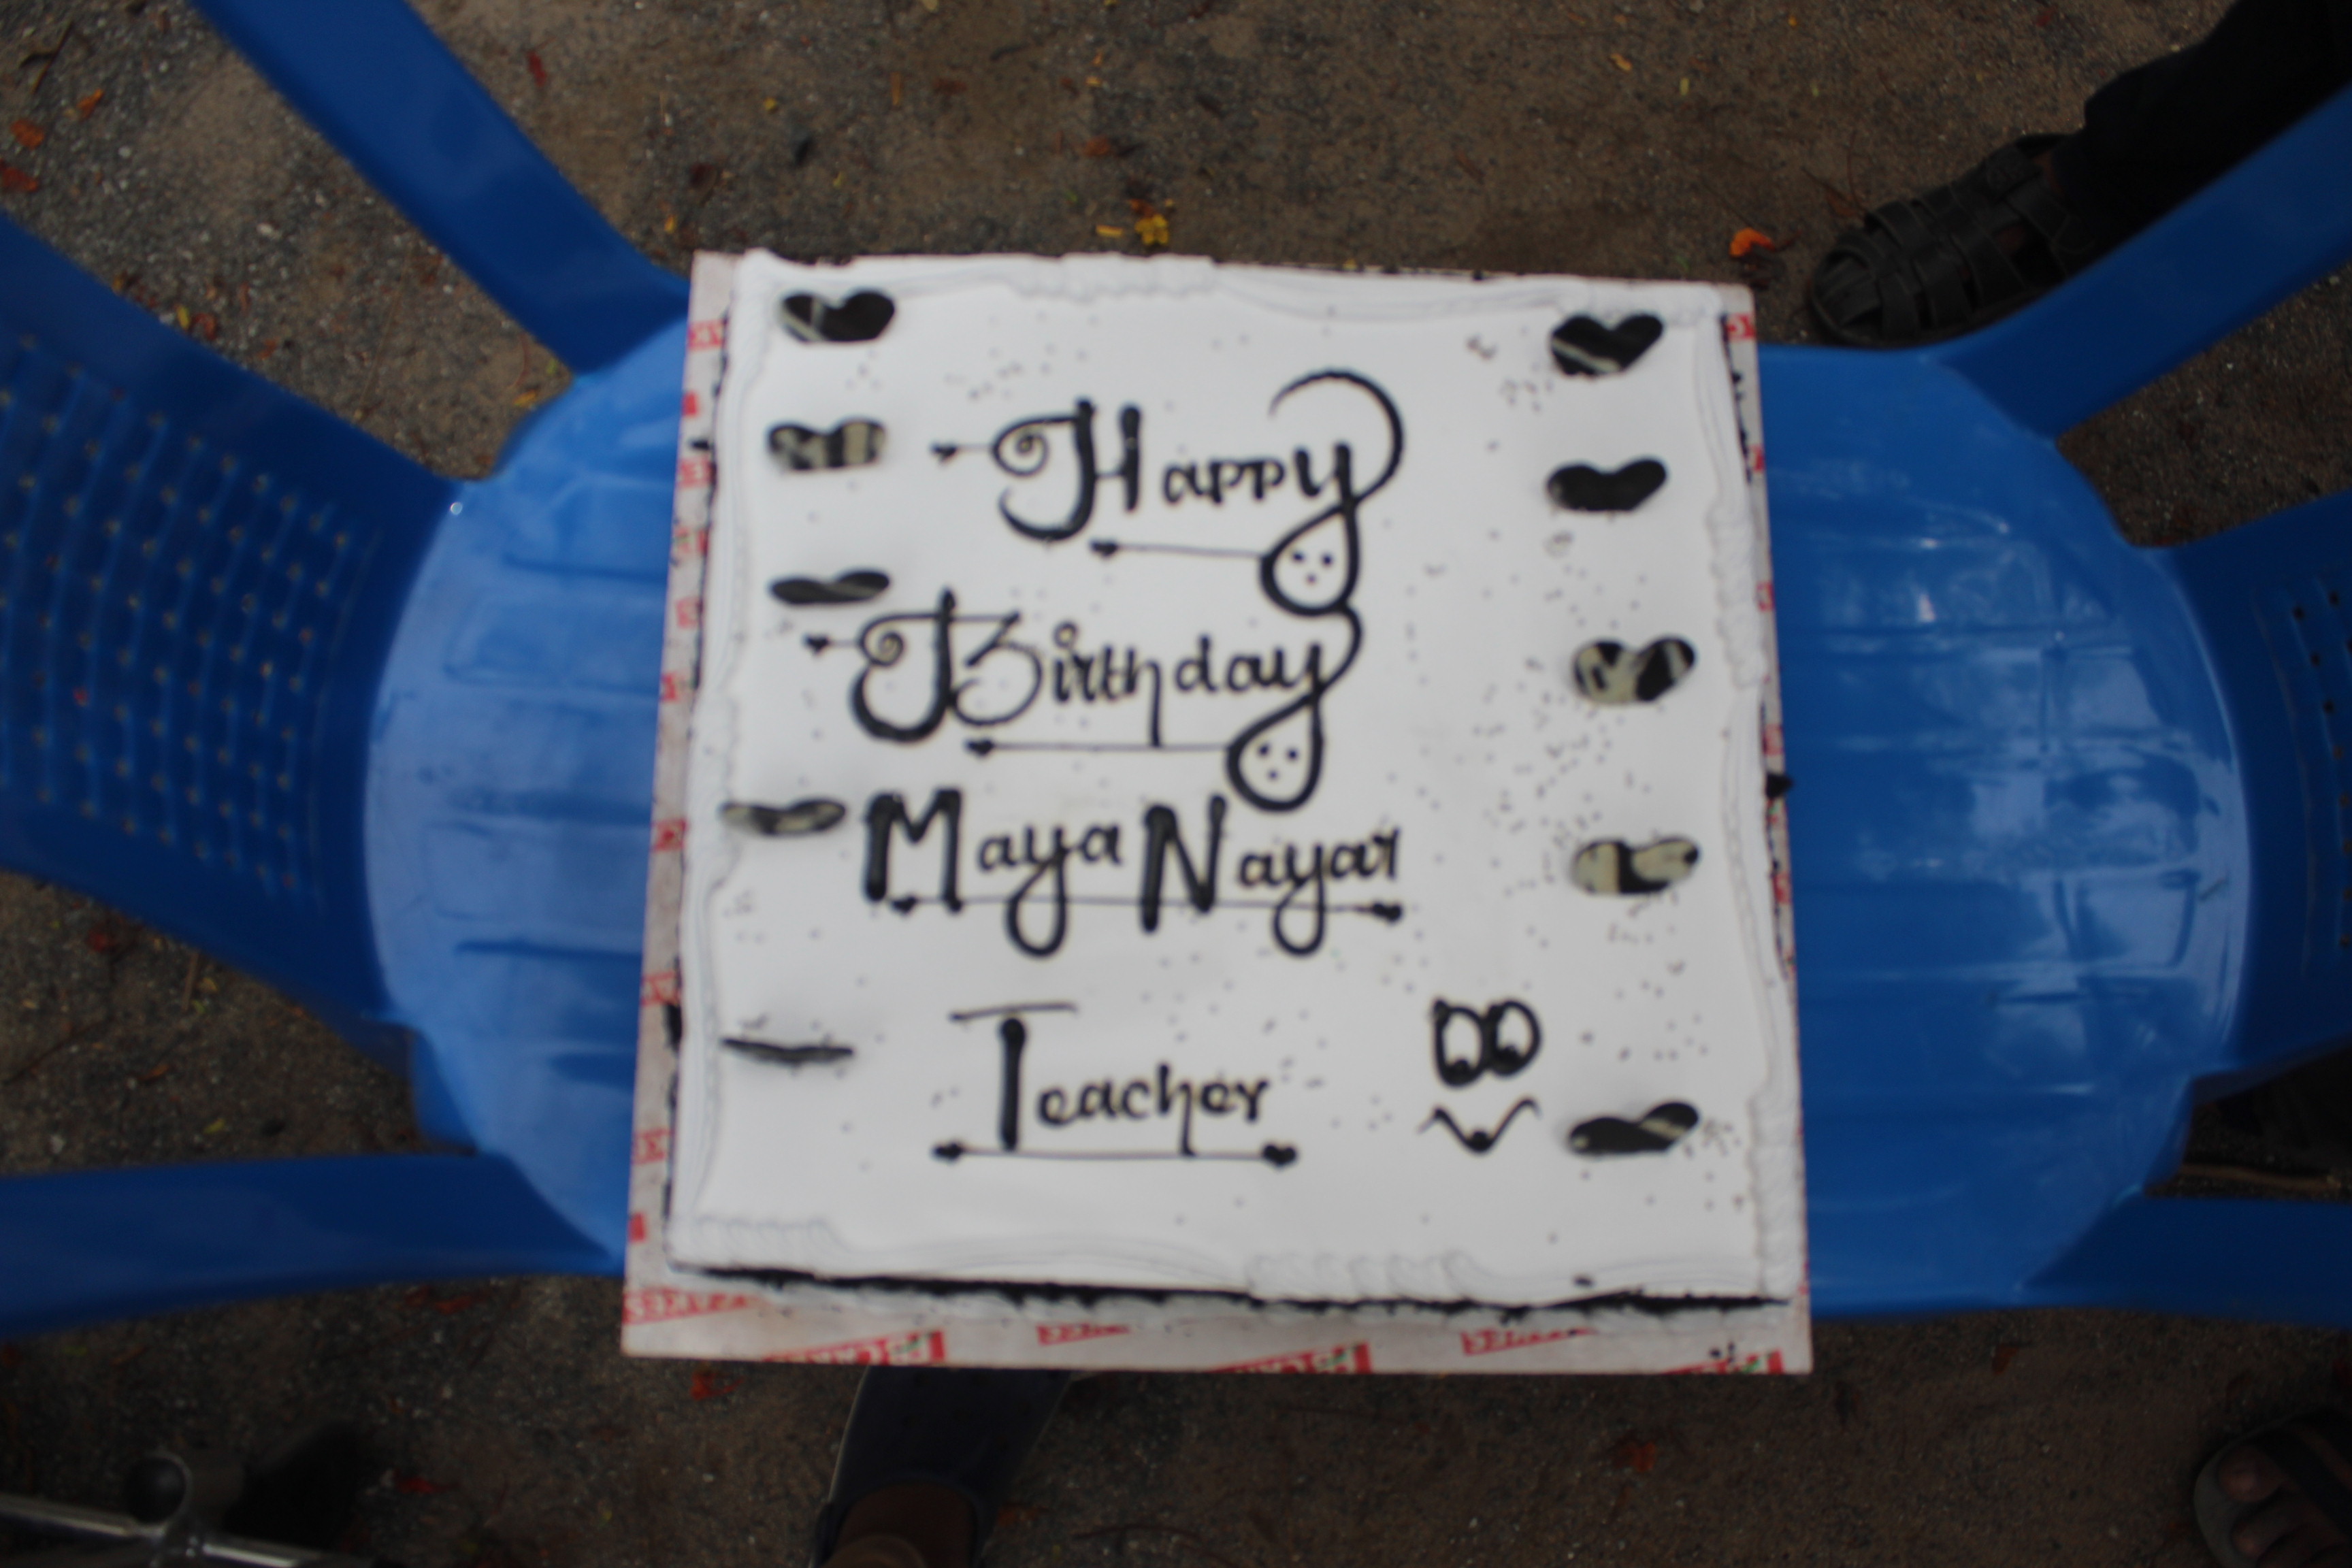 Happy
Birthday
Maya Nayar
Teacher